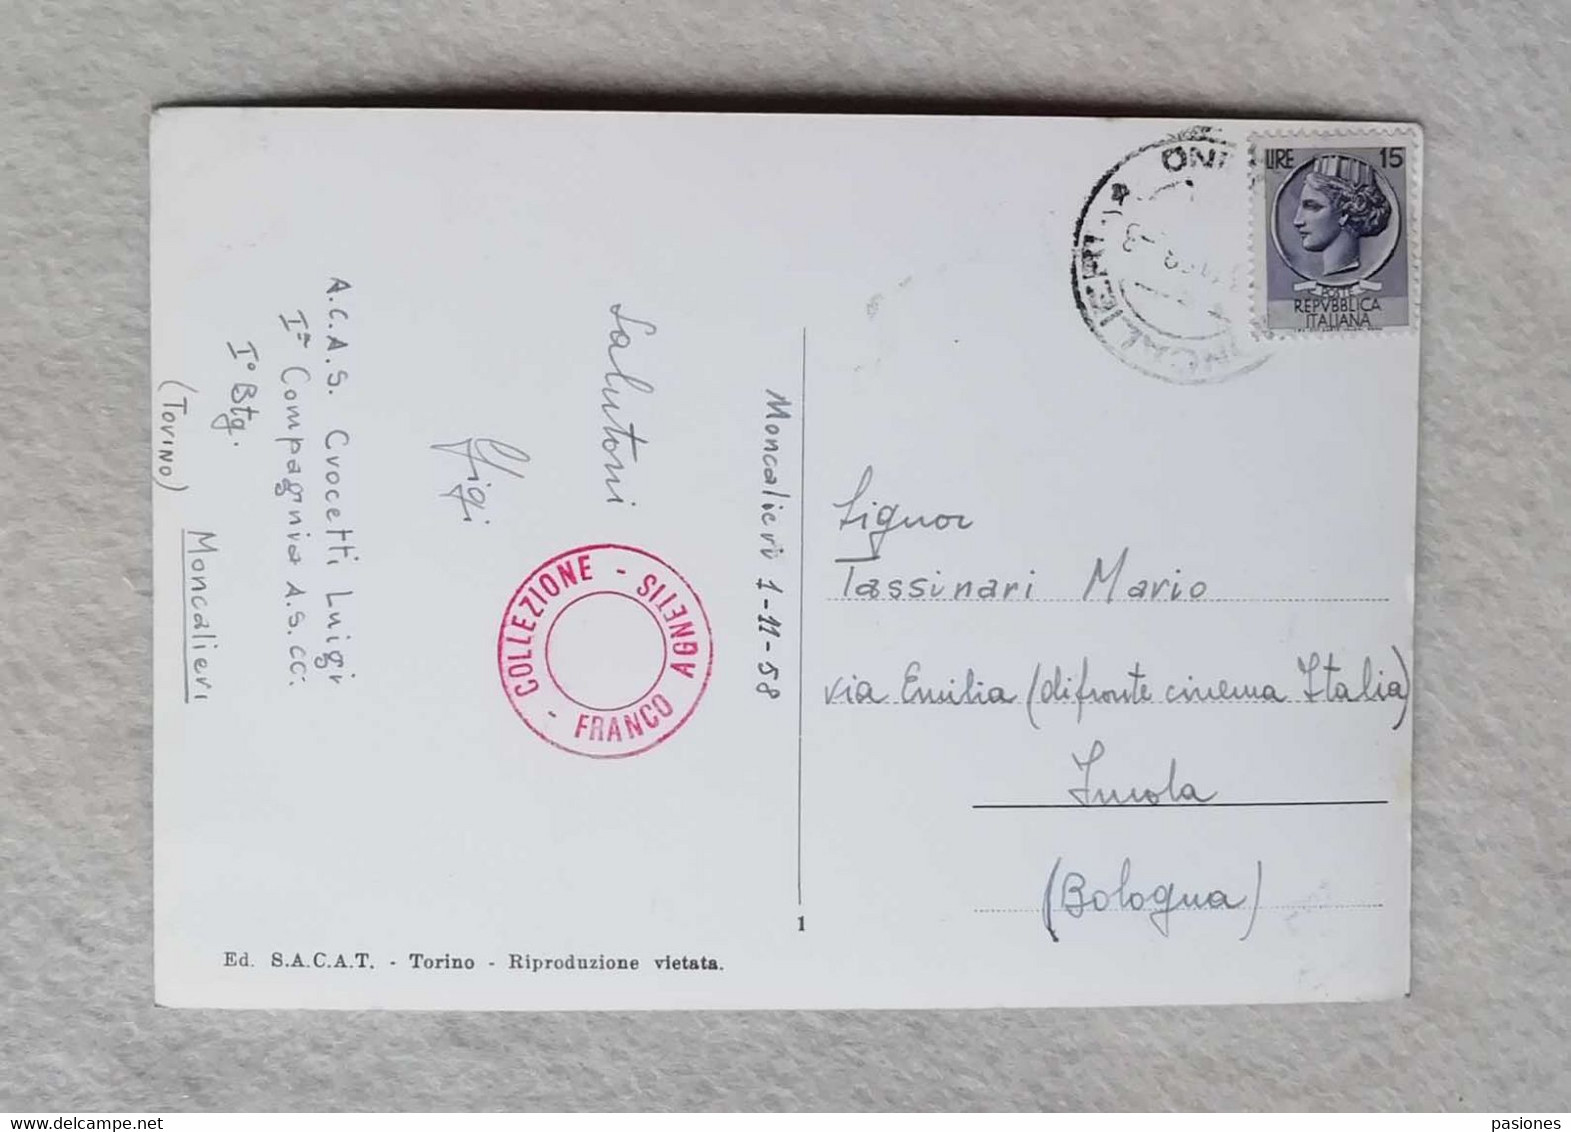 A.C.A.S. Crocetti Luigi
Iª Compagnia A.S.CC.
I° Btg.
(Torino) Moncalieri
Salutoni
Gigi
Moncalieri 1-11-58
COLLEZIONE - FRANCO AGNETIS -
LIRE 15
POSTE
REPVBBLICA
ITALIANA
Signor
Tassinari Mario
via Emilia (difronte cinema Italia)
Imola
(Bologna)
1
Ed. S.A.C.A.T. - Torino - Riproduzione vietata.
pasiones